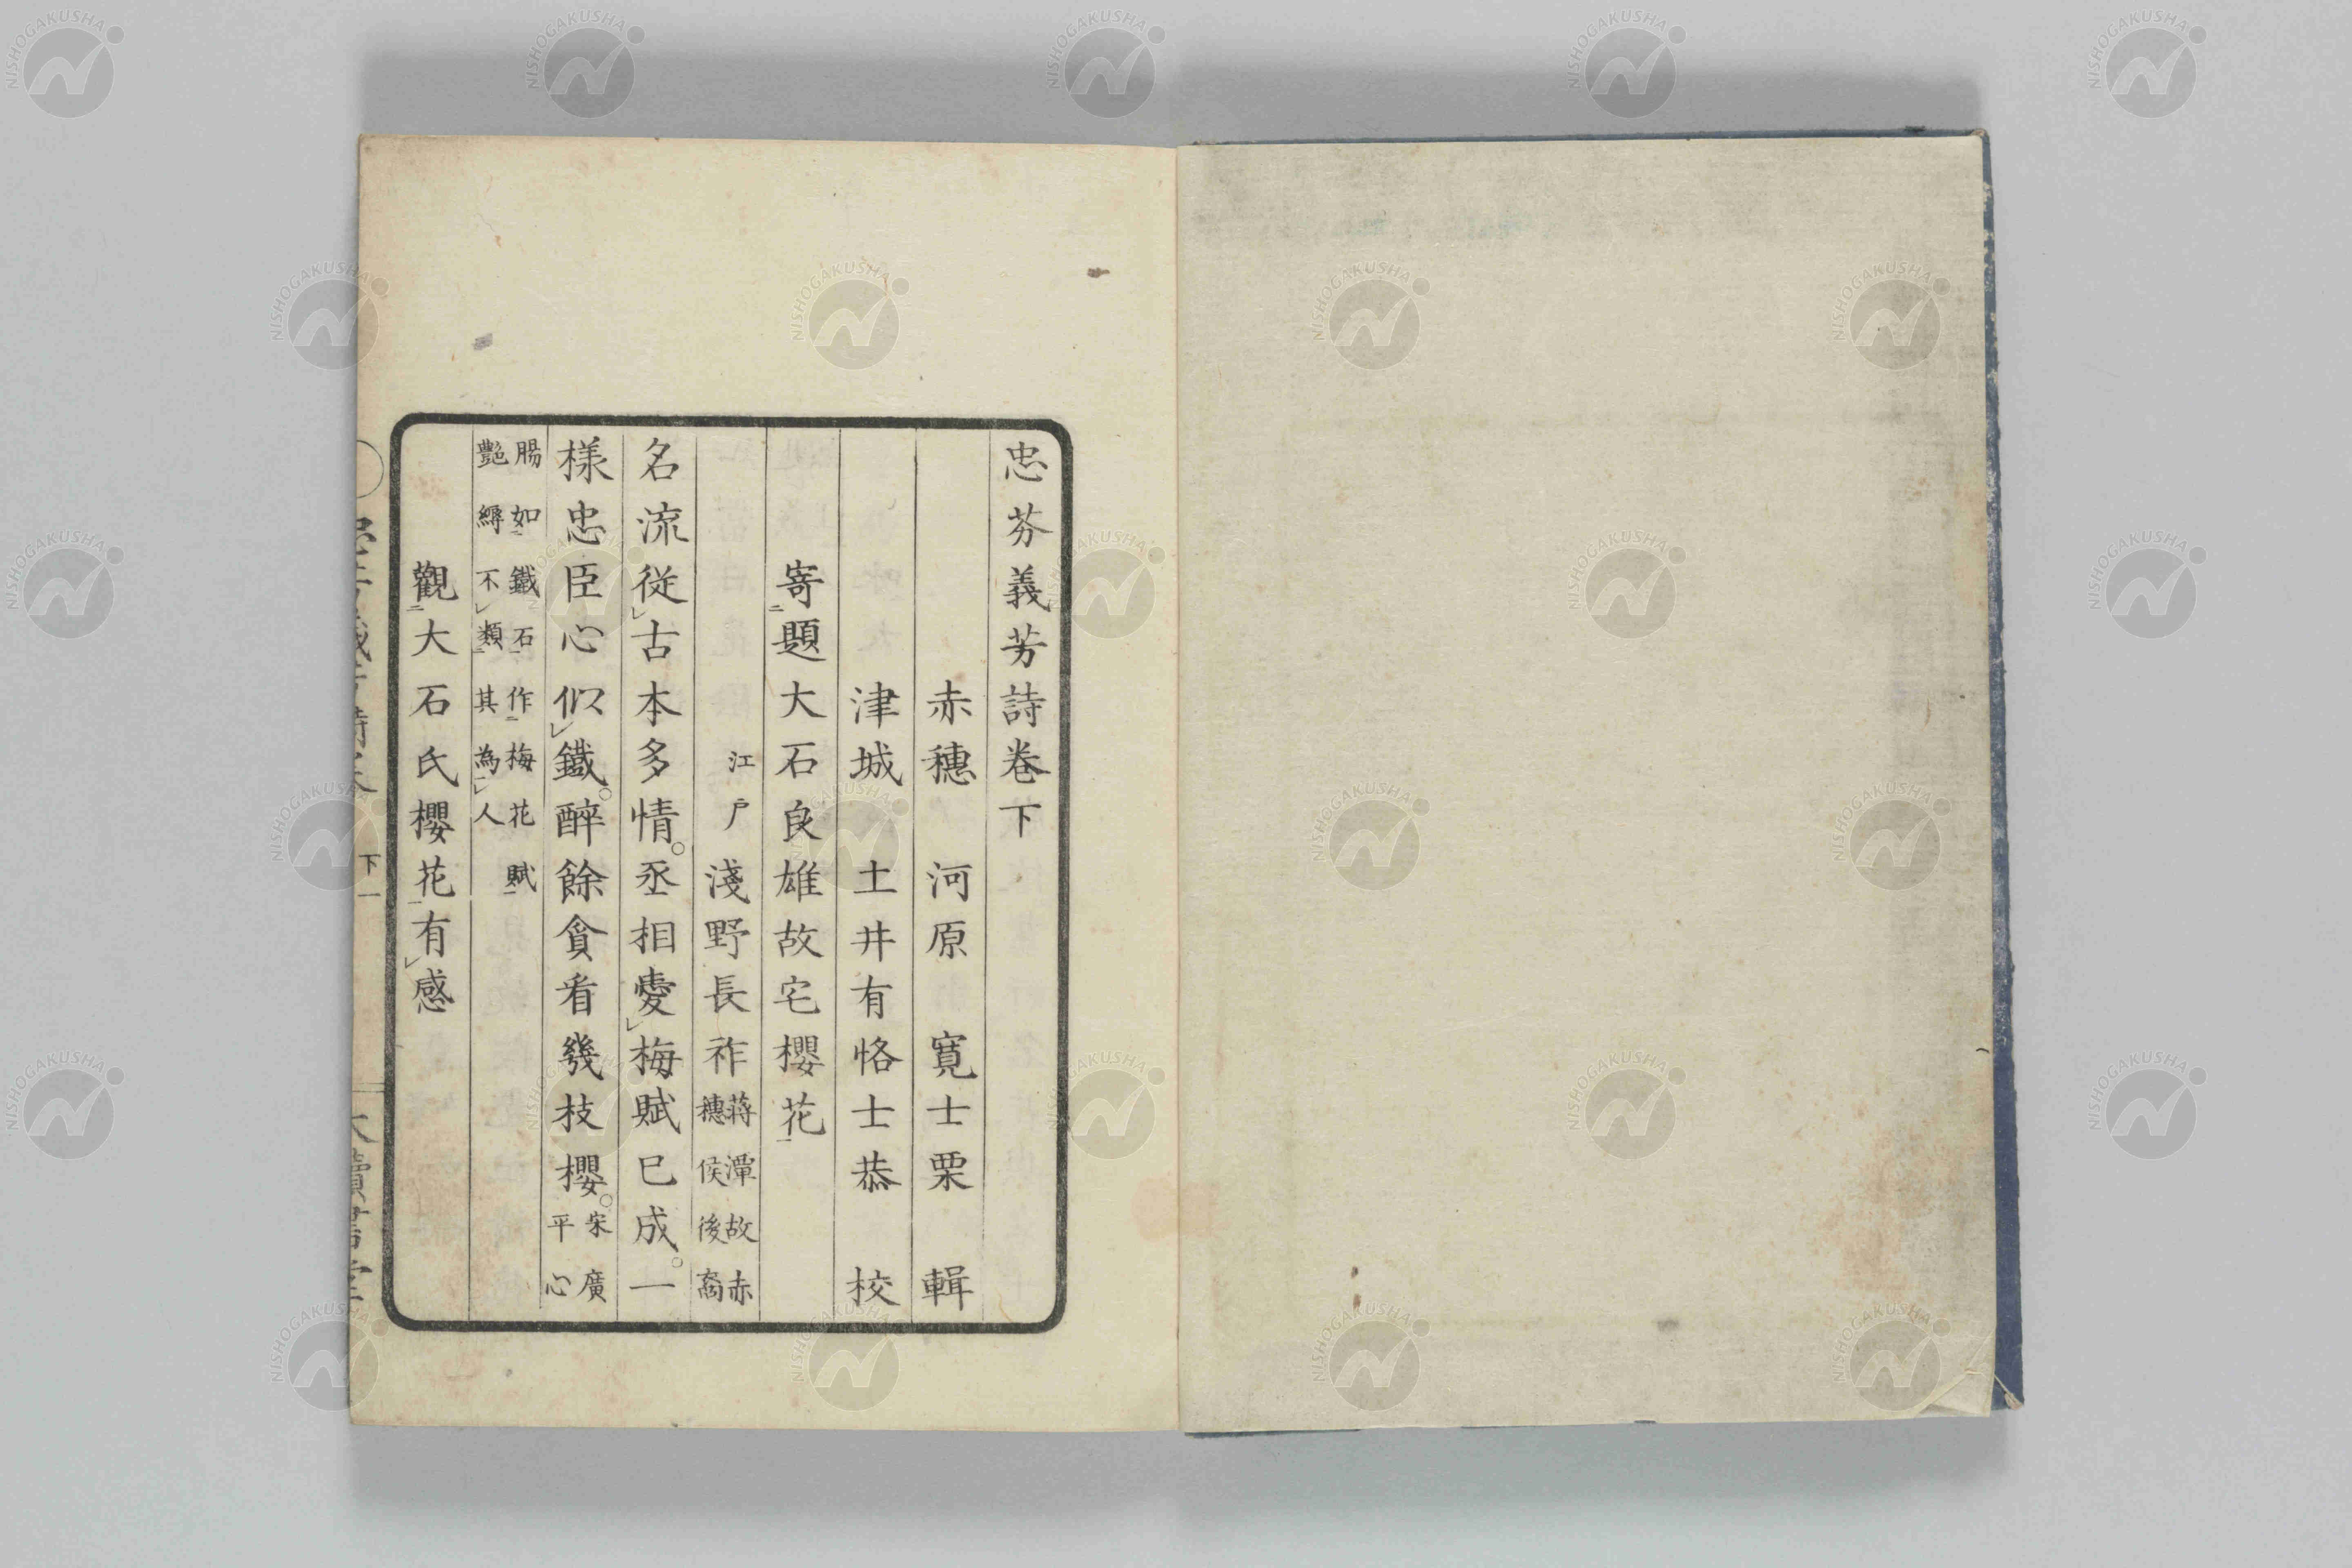 忠芬義芳詩卷下
赤穗　河原　寬士栗　輯
津城　土井有恪士恭　校
寄題大石良雄故宅櫻花
江戸　淺野長祚蔣潭故赤穗侯後裔
名流從古本多情。丞相愛梅賦已成。一
樣忠臣心似鐵。醉餘貪看幾枝櫻。宋廣平心
腸如鐵石作梅花賦
艷縟不類其為人
觀大石氏櫻花有感
下一
NISHOGAKUSHA